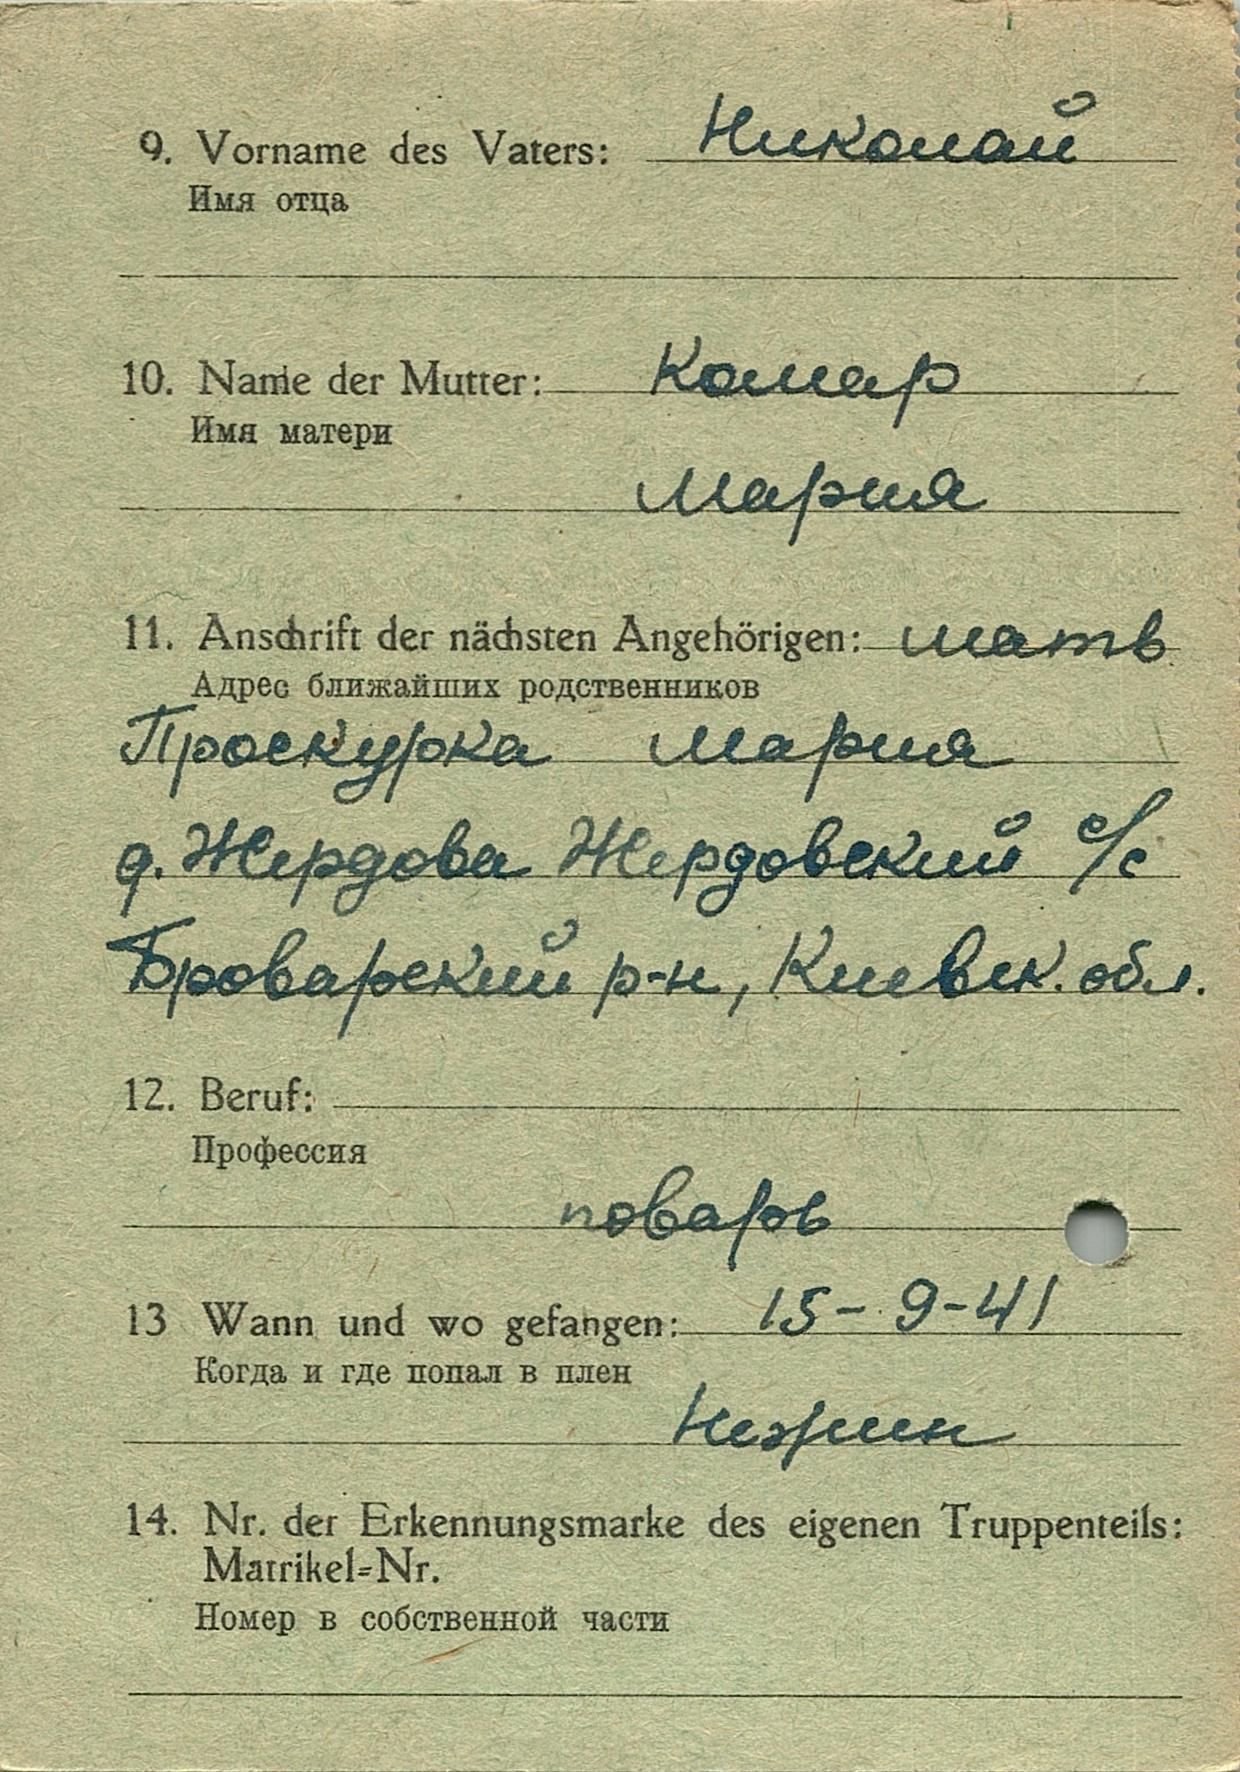 9. Vorname des Vaters: Николай
Имя отца
10. Name der Mutter: Комар
Имя матери
Мария
11. Anschrift der nächsten Angehörigen: мать
Адрес ближайших родственников
Проскурка Мария
д. Жердова Жердовский с/с
Броварский р-н, Киевск. обл.
12. Beruf:
Профессия
поварь
13 Wann und wo gefangen: 15-9-41
Когда и где попал в плен
Нежин
14. Nr. der Erkennungsmarke des eigenen Truppenteils:
Matrikel=Nr.
Номер в собственной части